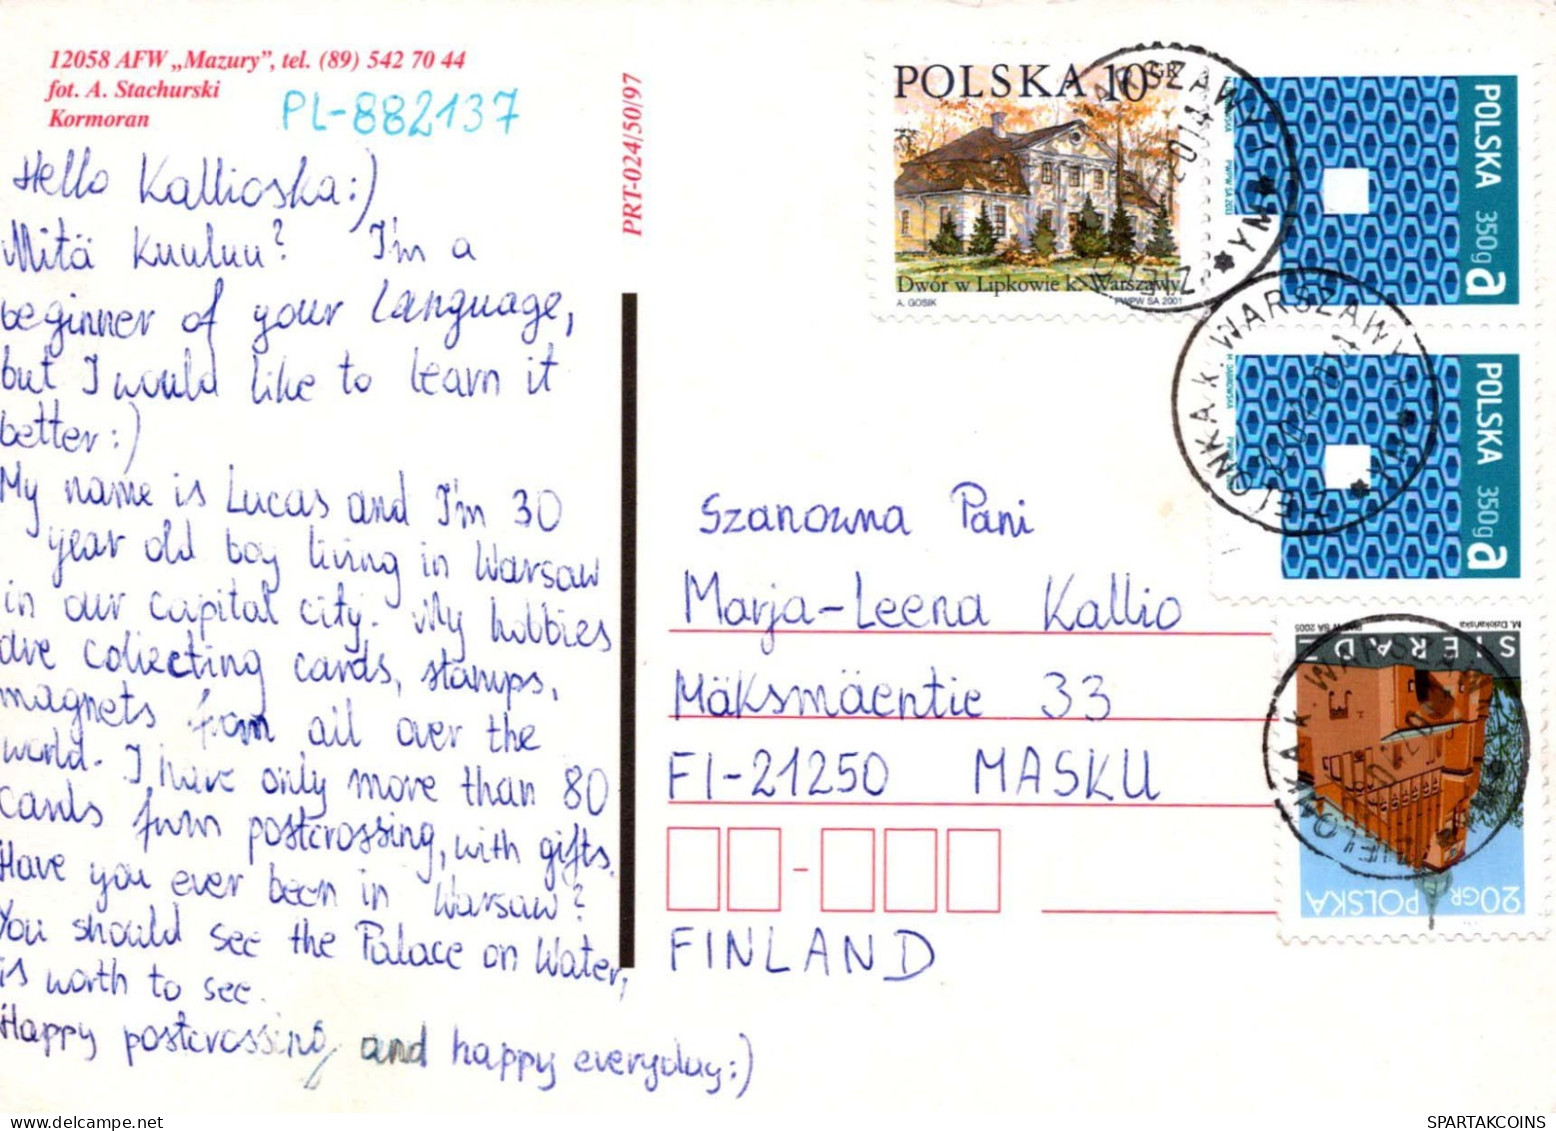 12058 AFW „Mazury”, tel. (89) 542 70 44
fot. A. Stachurski
Kormoran
PL-882137
PRT-024/50/97
Hello Kallioska:)
Mitä kuuluu? I'm a
beginner of your language,
but I would like to learn it
better:)
My name is Lucas and I'm 30
year old boy living in Warsaw
in our capital city. My hobbies
are collecting cards, stamps,
magnets from all over the
world. I have only more than 80
cards from postcrossing, with gifts.
Have you ever been in Warsaw?
You should see the Palace on Water,
is worth to see.
Happy postcrossing and happy everyday:)
Szanowna Pani
Marja-Leena Kallio
Mäksmäentie 33
FI-21250 MASKU
FINLAND
POLSKA 10 GR
Dwór w Lipkowie k. Warszawy
A. GOSIK PWPW SA 2001
POLSKA 350g a
POLSKA 350g a
SIERADZ
M. Dziekańska PWPW SA 2005
20GR POLSKA
ZIELONKA k. WARSZAWY
SPARTAKCOINS.COM